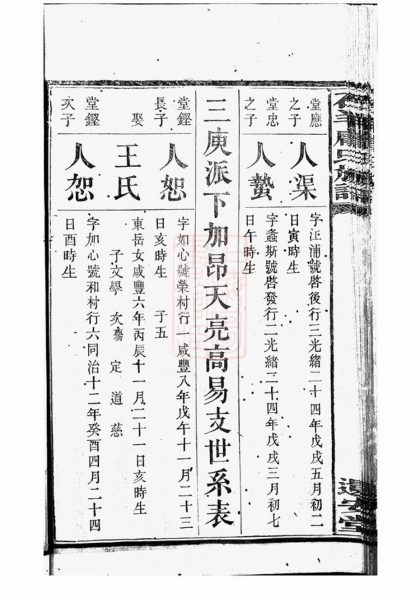 堂應之子
人渠
字江浦號啓後行三光緒二十四年戊戌五月初二
日寅時生
堂忠之子
人蟄
字螽斯號啓發行二光緒二十四年戊戌三月初七
日午時生
三庚派下加昂天亮高易支世系表
堂鏗長子
人恕
字如心號榮村行一咸豐八年戊午十一月二十三
日亥時生 子五
娶
王氏
東岳女咸豐六年丙辰十一月二十一日亥時生
子文學 次 定 道 慈
堂鏗次子
人恕
字加心號和村行六同治十二年癸酉四月二十四
日酉時生